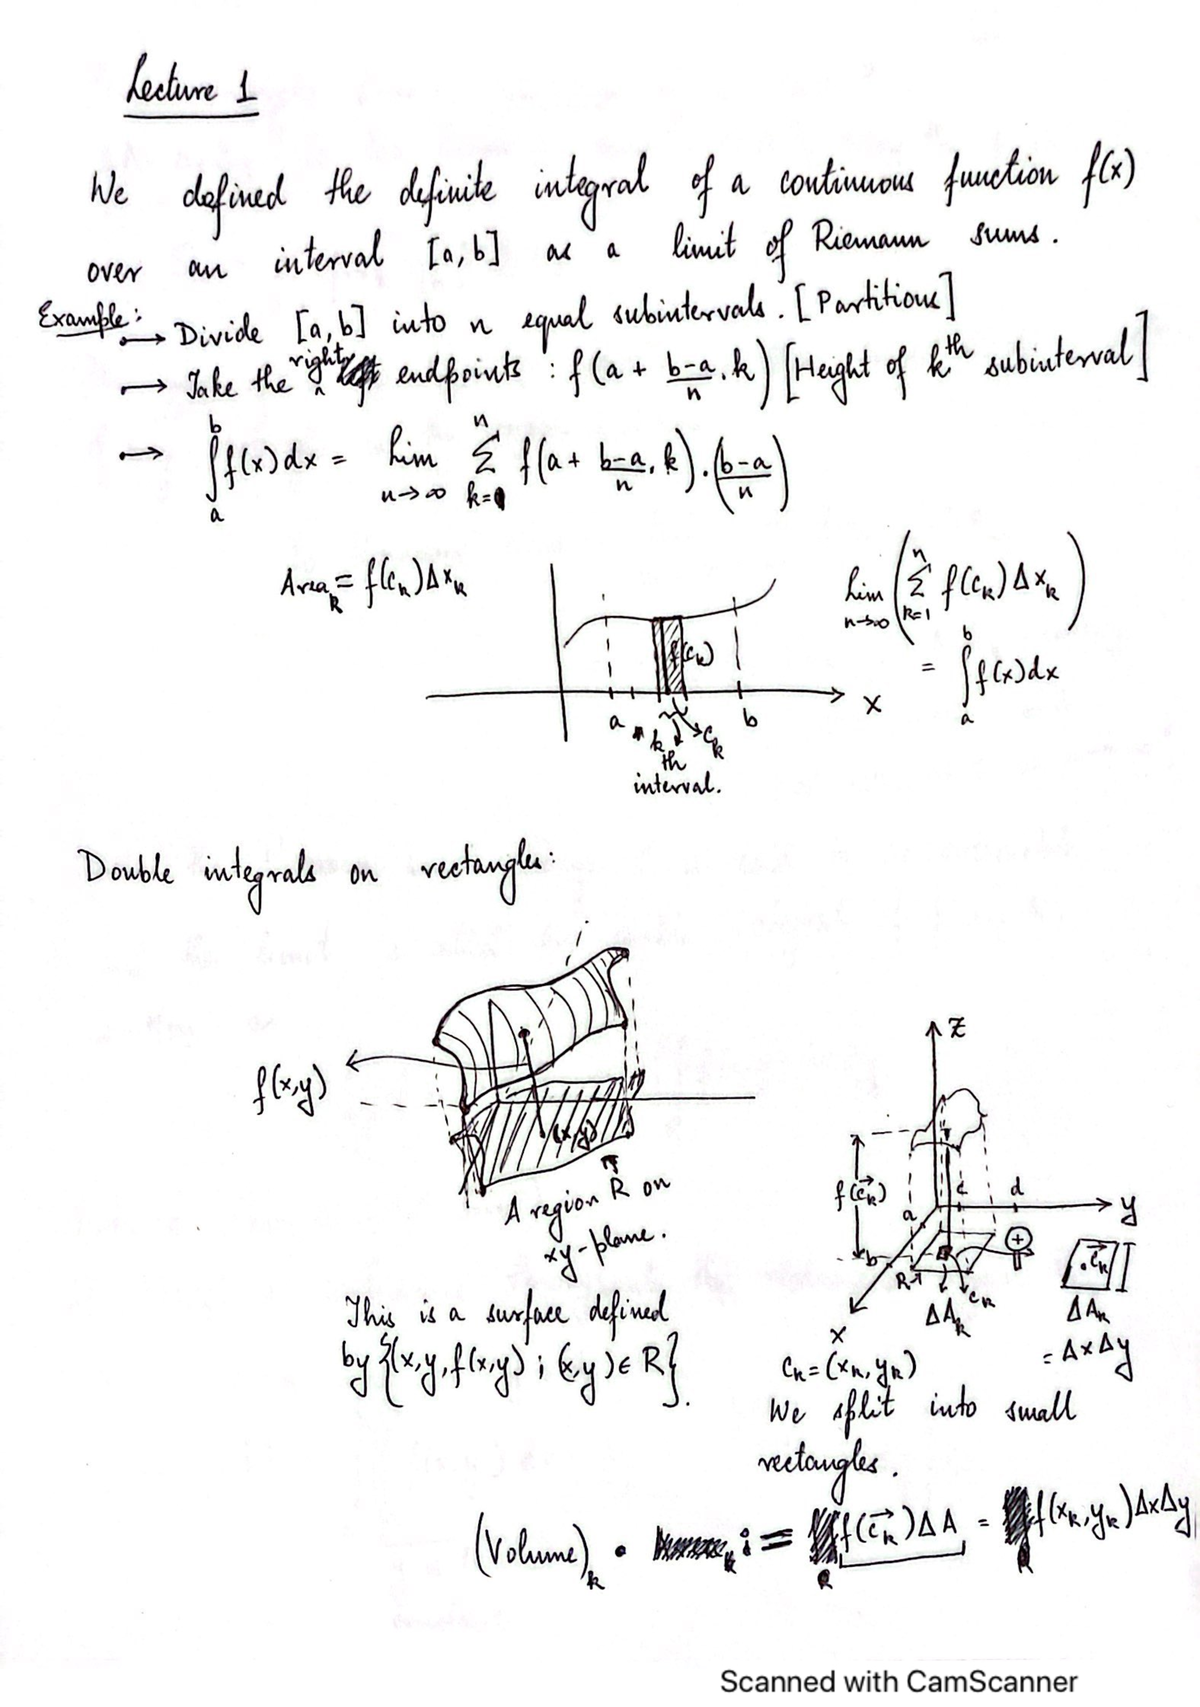 Lecture 1
We defined the definite integral of a continuous function f(x)
over an interval [a,b] as a limit of Riemann sums.
Example:
→ Divide [a,b] into n equal subintervals. [Partitions]
→ Take the right endpoints : f(a + b-a/n . k) [Height of kth subinterval]
→ ∫_a^b f(x)dx = lim_{n→∞} Σ_{k=1}^n f(a + b-a/n . k).(b-a/n)
Area_k = f(c_k)Δx_k
lim_{n→∞} (Σ_{k=1}^n f(c_k)Δx_k)
= ∫_a^b f(x)dx
f(c_k)
x
a
b
c_k
kth
interval.
Double integrals on rectangles:
f(x,y)
(x,y)
A region R on
xy-plane.
This is a surface defined
by {(x,y,f(x,y) ; (x,y) ∈ R}.
z
f(c⃗_k)
a
c
d
y
b
R
c_k
ΔA_k
x
c⃗_k
ΔA_k
= ΔxΔy
c_k = (x_k, y_k)
We split into small
rectangles.
(Volume)_k = f(c⃗_k)ΔA = f(x_k, y_k)ΔxΔy
Scanned with CamScanner